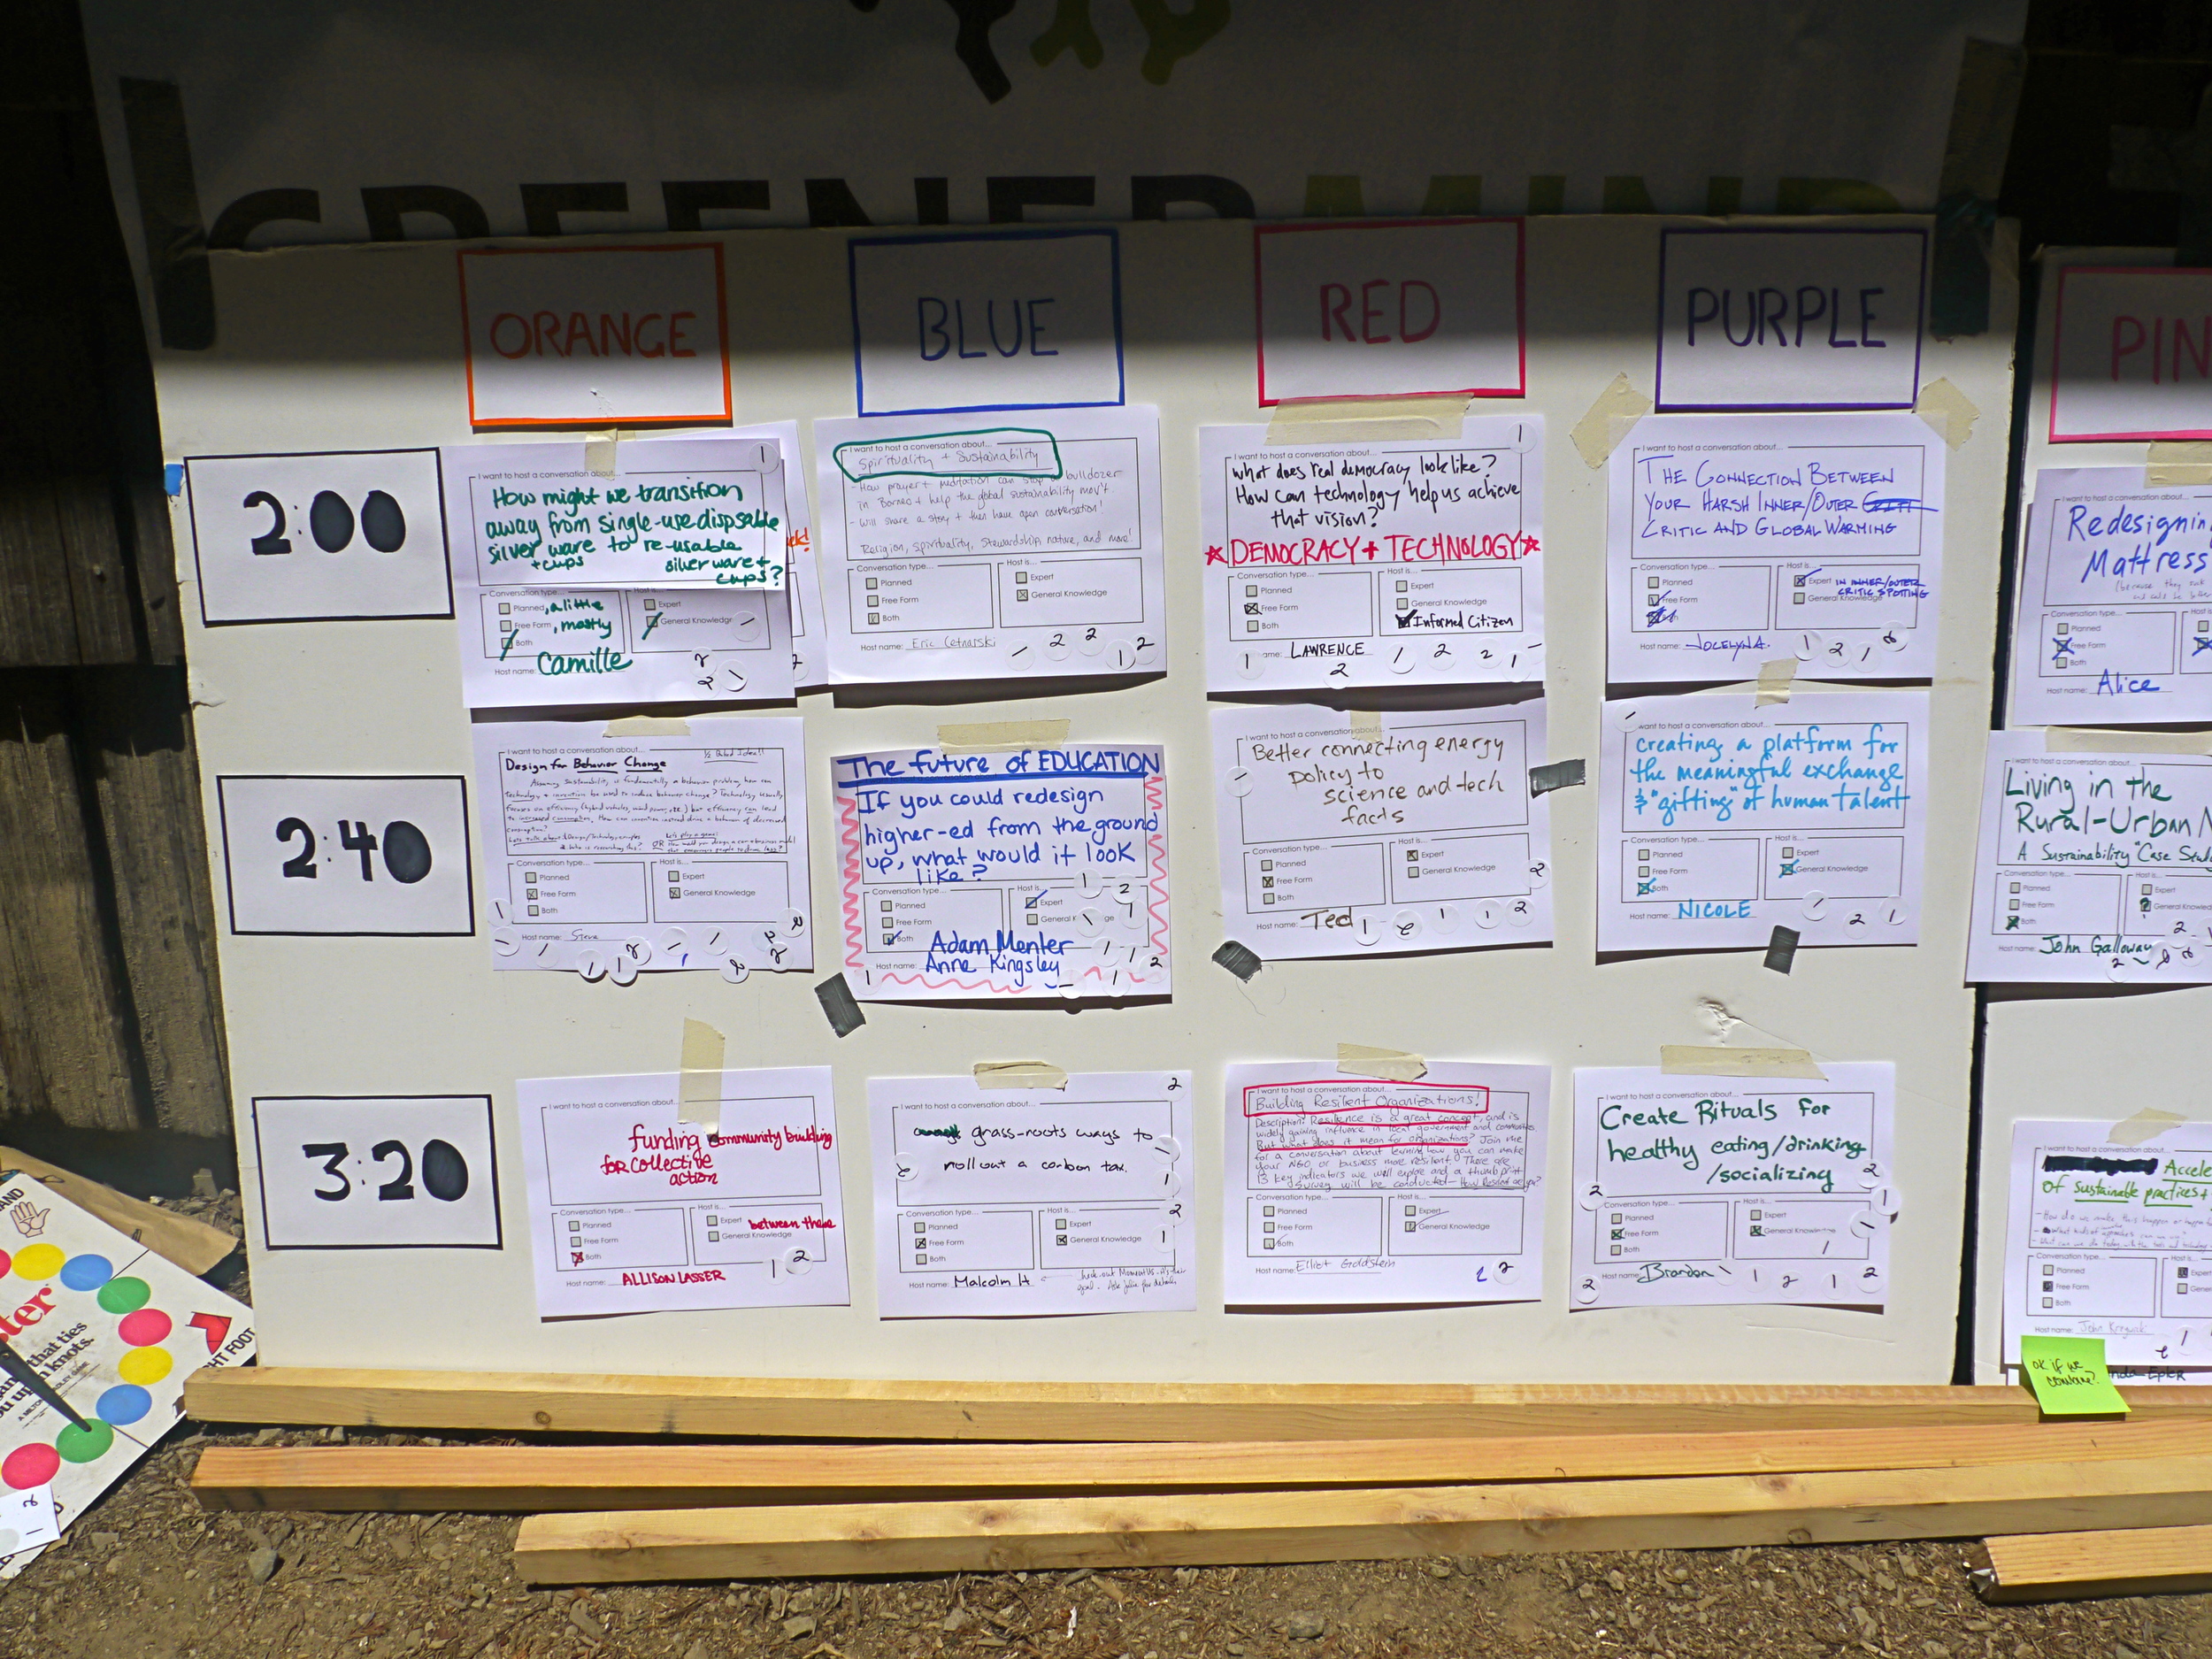 GREENERMIND
ORANGE
BLUE
RED
PURPLE
PIN
2:00
I want to host a conversation about...
How might we transition
away from single-use-dispsable
silver ware to re-usable
+ cups silver ware +
cups?
Conversation type...
Planned, a little
Free Form, mostly
Both
Host is...
Expert
General Knowledge
Host name: Camille
I want to host a conversation about...
Spirituality + Sustainability
- How prayer + meditation can stop a bulldozer
in Borneo + help the global sustainability mov't.
- Will share a story + then have open conversation!
Religion, Spirituality, Stewardship, nature, and more!
Conversation type...
Planned
Free Form
Both
Host is...
Expert
General Knowledge
Host name: Eric Cetnarski
What does real democracy look like?
How can technology help us achieve
that vision?
★ DEMOCRACY + TECHNOLOGY ★
Conversation type...
Planned
Free Form
Both
Host is...
Expert
General Knowledge
Informed Citizen
LAWRENCE
I want to host a conversation about...
THE CONNECTION BETWEEN
YOUR HARSH INNER/OUTER
CRITIC AND GLOBAL WARMING
Conversation type...
Planned
Free Form
Host is...
Expert IN INNER/OUTER
CRITIC SPOTTING
General Knowledge
Host name: JOCELYN A.
I want to host a conversation about...
Redesignin
Mattress
Conversation type...
Planned
Free Form
Both
Host name: Alice
2:40
I want to host a conversation about...
1/2 Baked Idea!!
Design for Behavior Change
Assuming sustainability is fundamentally a behavior problem, how can
technology + invention be used to induce behavior change? Technology usually
focuses on efficiency (hybrid vehicles, wind power, etc.) but efficiency can lead
to increased consumption. How can invention instead drive a behavior of decreased
consumption?
Conversation type...
Planned
Free Form
Both
Host is...
Expert
General Knowledge
Host name: Steve
The future of EDUCATION
If you could redesign
higher-ed from the ground
up, what would it look
like?
Conversation type...
Planned
Free Form
Both
Host is...
Expert
Host name: Adam Menter
Anne Kingsley
I want to host a conversation about...
Better connecting energy
policy to
science and tech
facts
Conversation type...
Planned
Free Form
Both
Host is...
Expert
General Knowledge
Host name: Ted
want to host a conversation about...
Creating a platform for
the meaningful exchange
& "gifting" of human talent
Conversation type...
Planned
Free Form
Both
Host is...
Expert
General Knowledge
Host name: NICOLE
I want to host a conversation about...
Living in the
Rural-Urban
A Sustainability "Case Stud
Conversation type...
Planned
Free Form
Both
Host is...
Expert
General Knowledge
Host name: John Galloway
3:20
I want to host a conversation about...
funding community building
for collective
action
Conversation type...
Planned
Free Form
Both
Host is...
Expert between these
General Knowledge
Host name: ALLISON LASSER
I want to host a conversation about...
grass-roots ways to
roll out a carbon tax.
Conversation type...
Planned
Free Form
Both
Host is...
Expert
General Knowledge
Host name: Malcolm H.
I want to host a conversation about...
Building Resilient Organizations!
Description: Resilience is a great concept, and is
widely gaining influence in local government and communities.
But what does it mean for organizations? Join me
for a conversation about learning how you can make
your NGO or business more resilient. There are
13 key indicators we will explore and a thumb print
survey will be conducted - How Resilient are you?
Conversation type...
Planned
Free Form
Both
Host is...
Expert
General Knowledge
Host name: Elliot Goldstein
I want to host a conversation about...
Create Rituals for
healthy eating/drinking
/socializing
Conversation type...
Planned
Free Form
Both
Host is...
Expert
General Knowledge
Host name: Brandon
I want to host a conversation about...
Accele
of sustainable practices +
Conversation type...
Planned
Free Form
Both
Host is...
Expert
Host name: John
ok if we
combine?
Epler
HAND
ster
that ties
you up in knots.
GHT FOOT